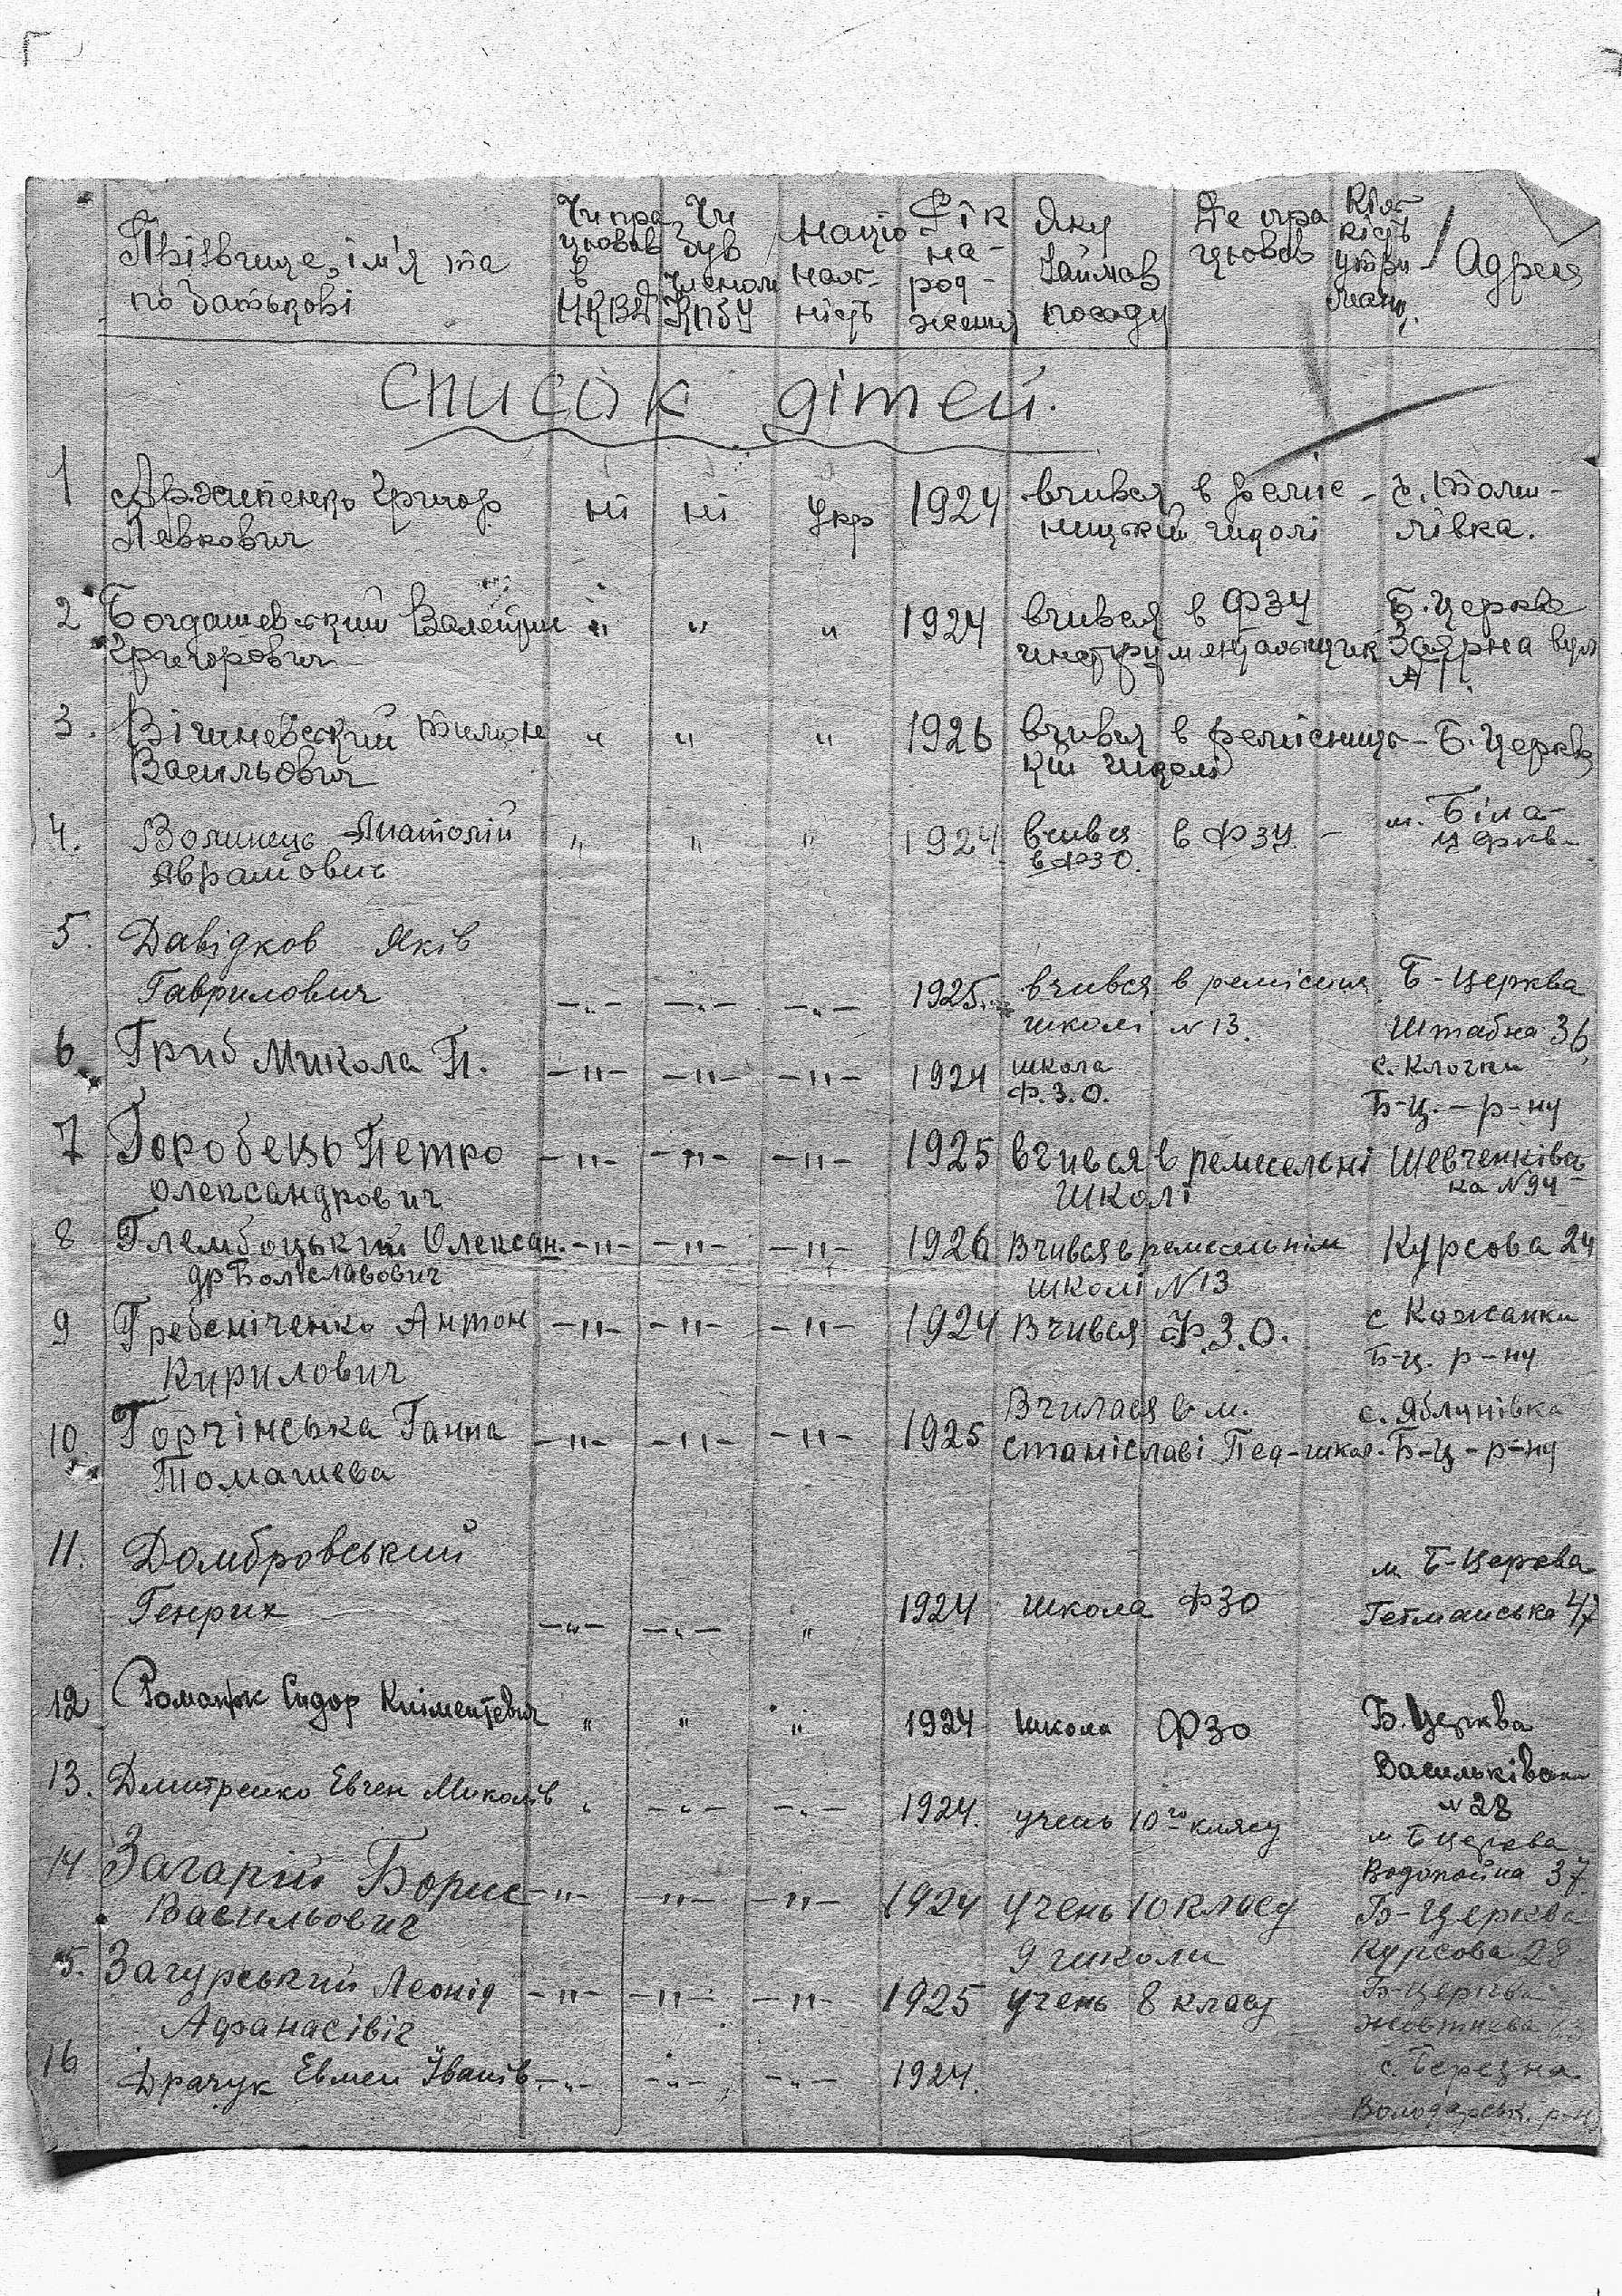 Прізвище, ім'я та по батькові
Чи працював в НКВД
Чи був членом КПбУ
Національність
Рік народження
Яку займав посаду
Де працював
Кількість утриман.
Адреса
Список дітей.
1 Архипенко Григор ні ні Укр 1924 вчився в реміс- с. Томи-
Левкович ницькій школі лівка.
2 Богдашевський Валентин " " " 1924 вчився в ФЗУ Б. Церква
Григорович инструментальщик Заярна вул
№ 1.
3. Вішневский Тимон " " " 1926 вчився в ремісниць- Б. Церква
Васильович кій школі
4. Волинець Анатолій " " " 1924 вчився в ФЗУ - м. Біла-
Аврамович в ФЗО. церква
5. Давідков Яків
Гаврилович -"- -"- -"- 1925. вчився в ремісн. Б-Церква
школі N 13. Штабна 36
6. Гриб Микола П. -"- -"- -"- 1924 школа с. Клочки
Ф.З.О. Б-Ц. - р-ну
7 Горобець Петро -"- -"- -"- 1925 вчився в ремеселені Шевченківсь-
Олександрович школі ка N 94
8 Глембоцький Олексан. -"- -"- -"- 1926 Вчився в ремесельнім Курсова 24
др Болеславович школі N 13
9 Гребеніченко Антон -"- -"- -"- 1924 Вчився Ф.З.О. с Кожанки
Кирилович Б-Ц. р-ну
Вчилася в м. с. Яблунівка
10. Горчінська Ганна -"- -"- -"- 1925 Станіславі Пед-школ. Б-Ц-р-ну
Томашева
11. Домбровський м Б-Церква
Генрих -"- -"- " 1924 школа ФЗО Гетманська 47
12 Романюк Сидор Кліментієвич " " " 1924 школа ФЗО Б. Церква
Васильківська
N 28
13. Дмитренко Евген Миколів " -"- -"- 1924. учень 10го класу м Б церква
Водопойна 37
14 Загарій Борис -"- -"- -"- 1924 учень 10 класу Б-Церква
Васильович 9 школи Курсова 28
5. Загурський Леонід -"- -"- -"- 1925 учень 8 класу Б-Церква
Афанасівіч Жовтнева 63
16 Драчук Евмен Іванів. -"- -"- -"- 1924. с. Березна
Володарськ. р-н